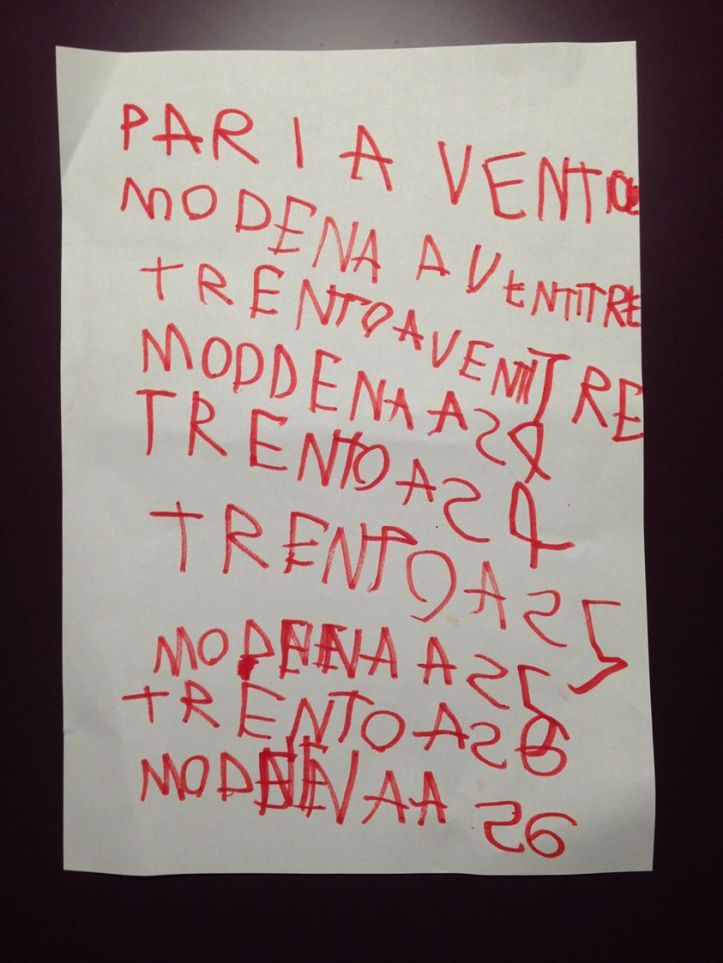 PARI A
MODENA A VENTITRE
TRENTO A VENTITRE
MODDENA A 24
TRENTO A 24
TRENTO A 25
MODENA A 25
TRENTO A 26
MODENA A 26